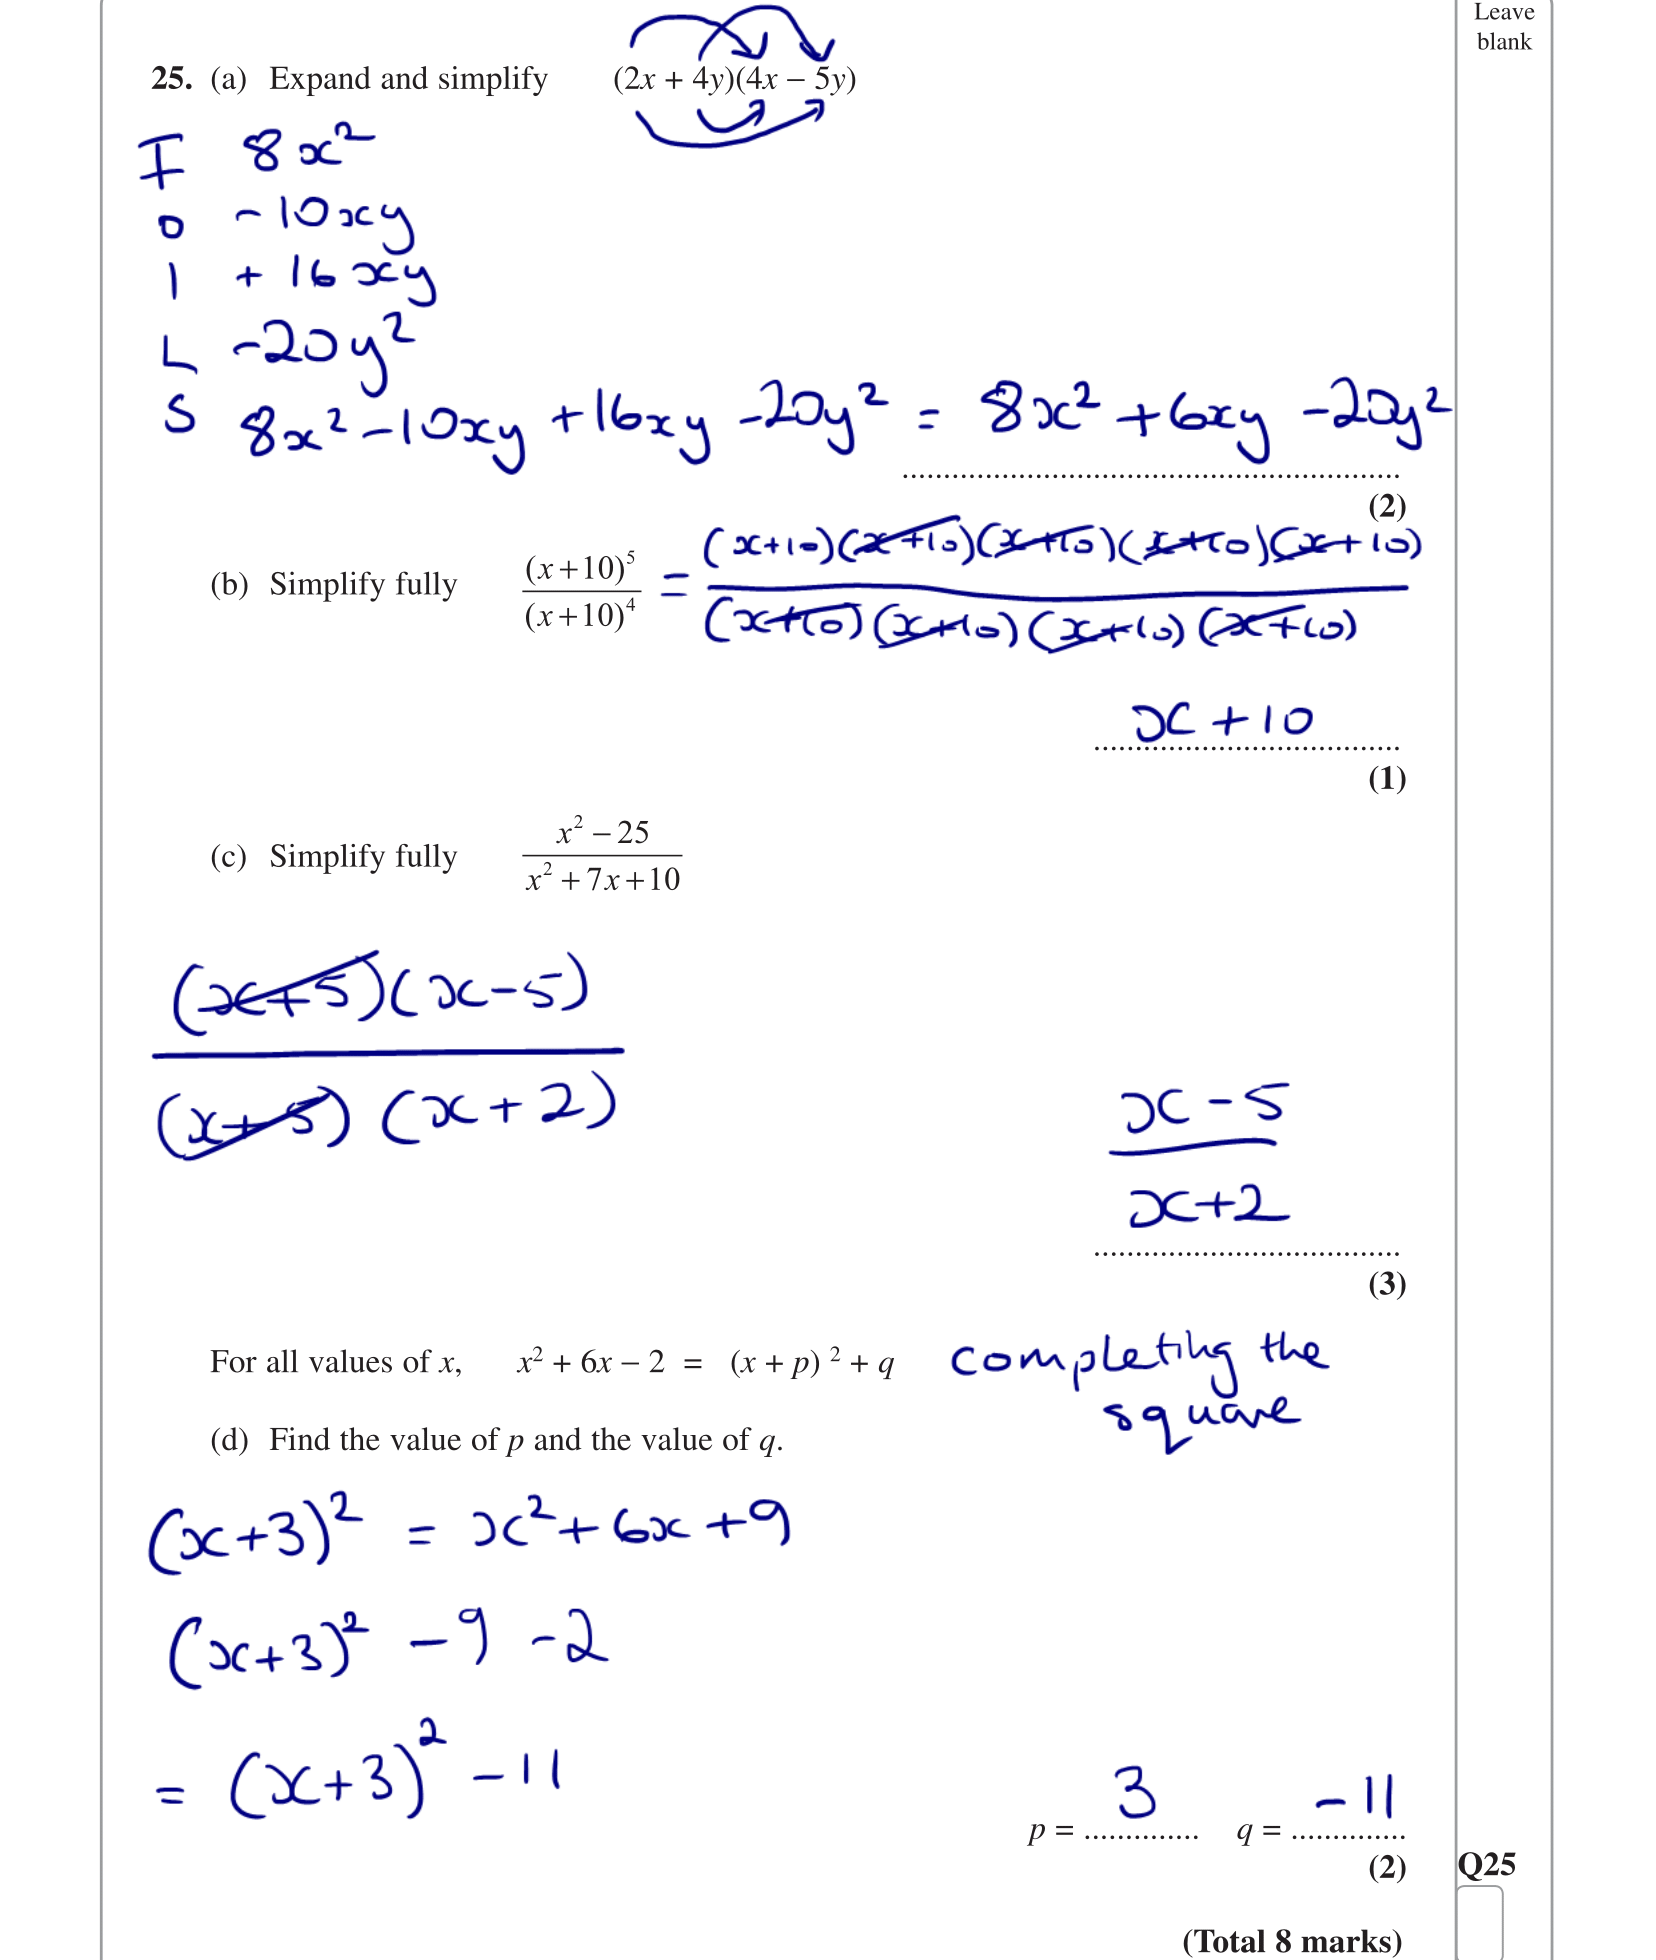 Leave
blank
25. (a) Expand and simplify (2x + 4y)(4x – 5y)
F 8x²
O -10xy
I + 16xy
L -20y²
S 8x² -10xy +16xy -20y² = 8x² +6xy -20y²
(2)
(b) Simplify fully (x+10)⁵/(x+10)⁴ = (x+10)(x+10)(x+10)(x+10)(x+10)/(x+10)(x+10)(x+10)(x+10)
x + 10
(1)
(c) Simplify fully x² – 25/x² + 7x + 10
(x+5)(x-5)
(x+5)(x+2)
x - 5
x+2
(3)
For all values of x, x² + 6x – 2 = (x + p)² + q completing the
square
(d) Find the value of p and the value of q.
(x+3)² = x² + 6x + 9
(x+3)² - 9 - 2
= (x+3)² - 11
p = 3 q = -11
(2) Q25
(Total 8 marks)